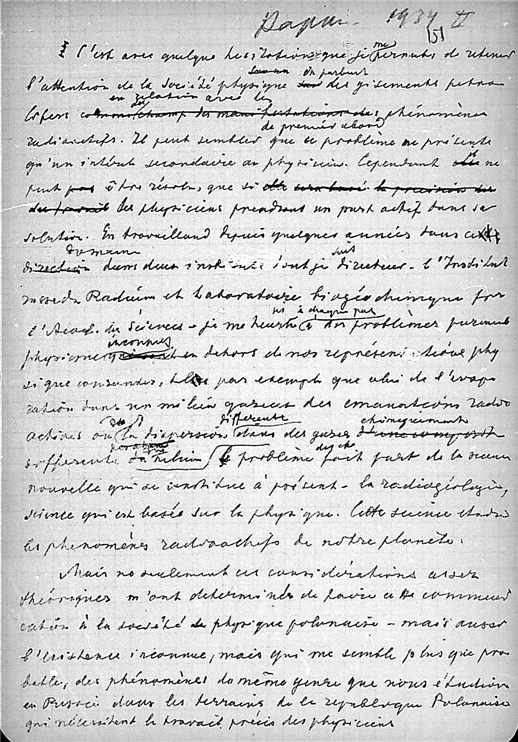 1934 II
[5]
C'est avec quelque hesitation que je me permets de retenir
l'attention de la Société physique en parlant des gisements petro
lifers en relation avec les phénomènes
radioactifs. Il peut sembler de premier abord que ce problème ne présente
qu'un intérêt secondaire au physicien. Cependant ne
peut être résolu, que si
les physiciens prendront un part actif dans sa
solution. En travaillant depuis quelques années dans ce
domaine dans deux instituts dont je suis directeur - l'Institut
du Radium et Laboratoire biogéochimique
l'Acad. des Sciences - je me heurte à chaque pas à des problèmes purement
physiques inconnus en dehors de nos représentations phy
siques courantes, par exemple que celui de l'evapo
ration dans un milieu gazeux des emanations radio
actives ou la dispersion differente dans des gazes chimiquement
differents du helium le problème fait part de la science
nouvelle qui se constitue à présent - la radiogéologie,
science qui est basée sur la physique. Cette science etudie
les phenomènes radioactifs de notre planète.
Mais no seulement ces considérations assez
théoriques m'ont determinés de faire cette communi
cation à la société de physique polonaise - mais aussi
l'existence inconnue, mais qui me semble plus que pro
bable, des phénomènes du même genre que nous étudions
en Russie dans les terrains de la republique Polonaise
qui nécessitent le travail précis des physiciens